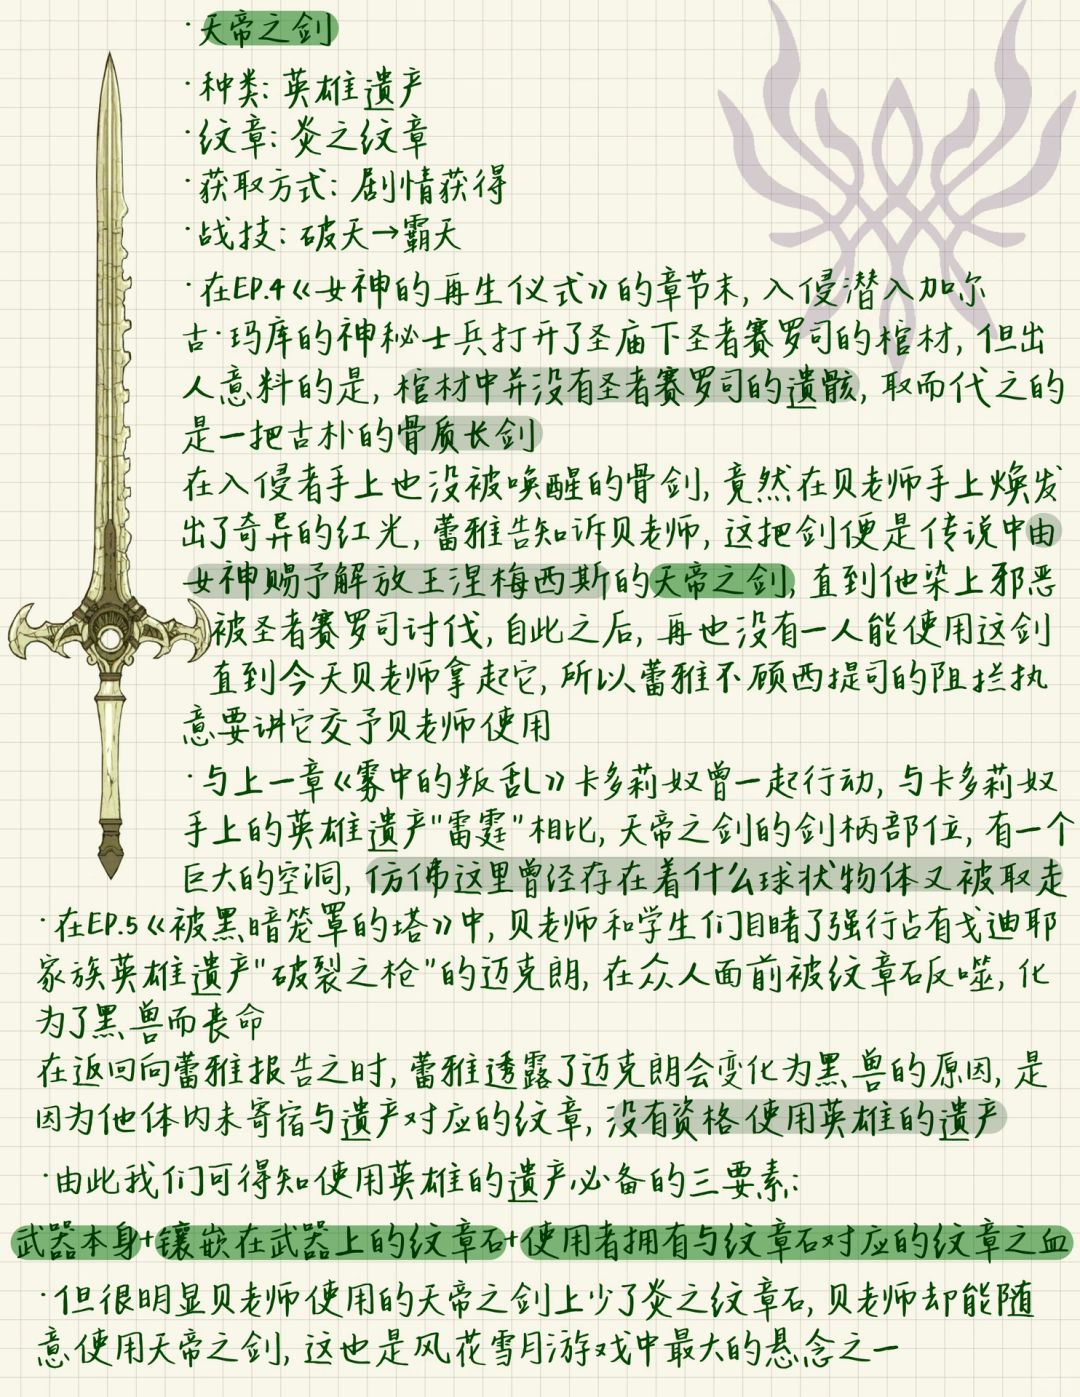 ·天帝之剑
·种类:英雄遗产
·纹章:炎之纹章
·获取方式:剧情获得
·战技:破天→霸天
·在EP.4《女神的再生仪式》的章节末,入侵潜入加尔
古·玛库的神秘士兵打开了圣庙下圣者赛罗司的棺材,但出
人意料的是,棺材中并没有圣者赛罗司的遗骸,取而代之的
是一把古朴的骨质长剑
在入侵者手上也没被唤醒的骨剑,竟然在贝老师手上焕发
出了奇异的红光,蕾雅告知诉贝老师,这把剑便是传说中由
女神赐予解放王涅梅西斯的天帝之剑,直到他染上邪恶
被圣者赛罗司讨伐,自此之后,再也没有一人能使用这剑
直到今天贝老师拿起它,所以蕾雅不顾西提司的阻拦执
意要讲它交予贝老师使用
·与上一章《雾中的叛乱》卡多莉奴曾一起行动,与卡多莉奴
手上的英雄遗产"雷霆"相比,天帝之剑的剑柄部位,有一个
巨大的空洞,仿佛这里曾经存在着什么球状物体又被取走
·在EP.5《被黑暗笼罩的塔》中,贝老师和学生们目睹了强行占有戈迪耶
家族英雄遗产"破裂之枪"的迈克朗,在众人面前被纹章石反噬,化
为了黑兽而丧命
在返回向蕾雅报告之时,蕾雅透露了迈克朗会变化为黑兽的原因,是
因为他体内未寄宿与遗产对应的纹章,没有资格使用英雄的遗产
·由此我们可得知使用英雄的遗产必备的三要素:
武器本身+镶嵌在武器上的纹章石+使用者拥有与纹章石对应的纹章之血
·但很明显贝老师使用的天帝之剑上少了炎之纹章石,贝老师却能随
意使用天帝之剑,这也是风花雪月游戏中最大的悬念之一